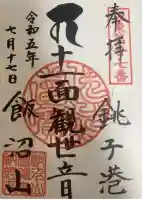 奉拝
銚子港
十一面觀世音
飯沼山
令和五年
七月十七日